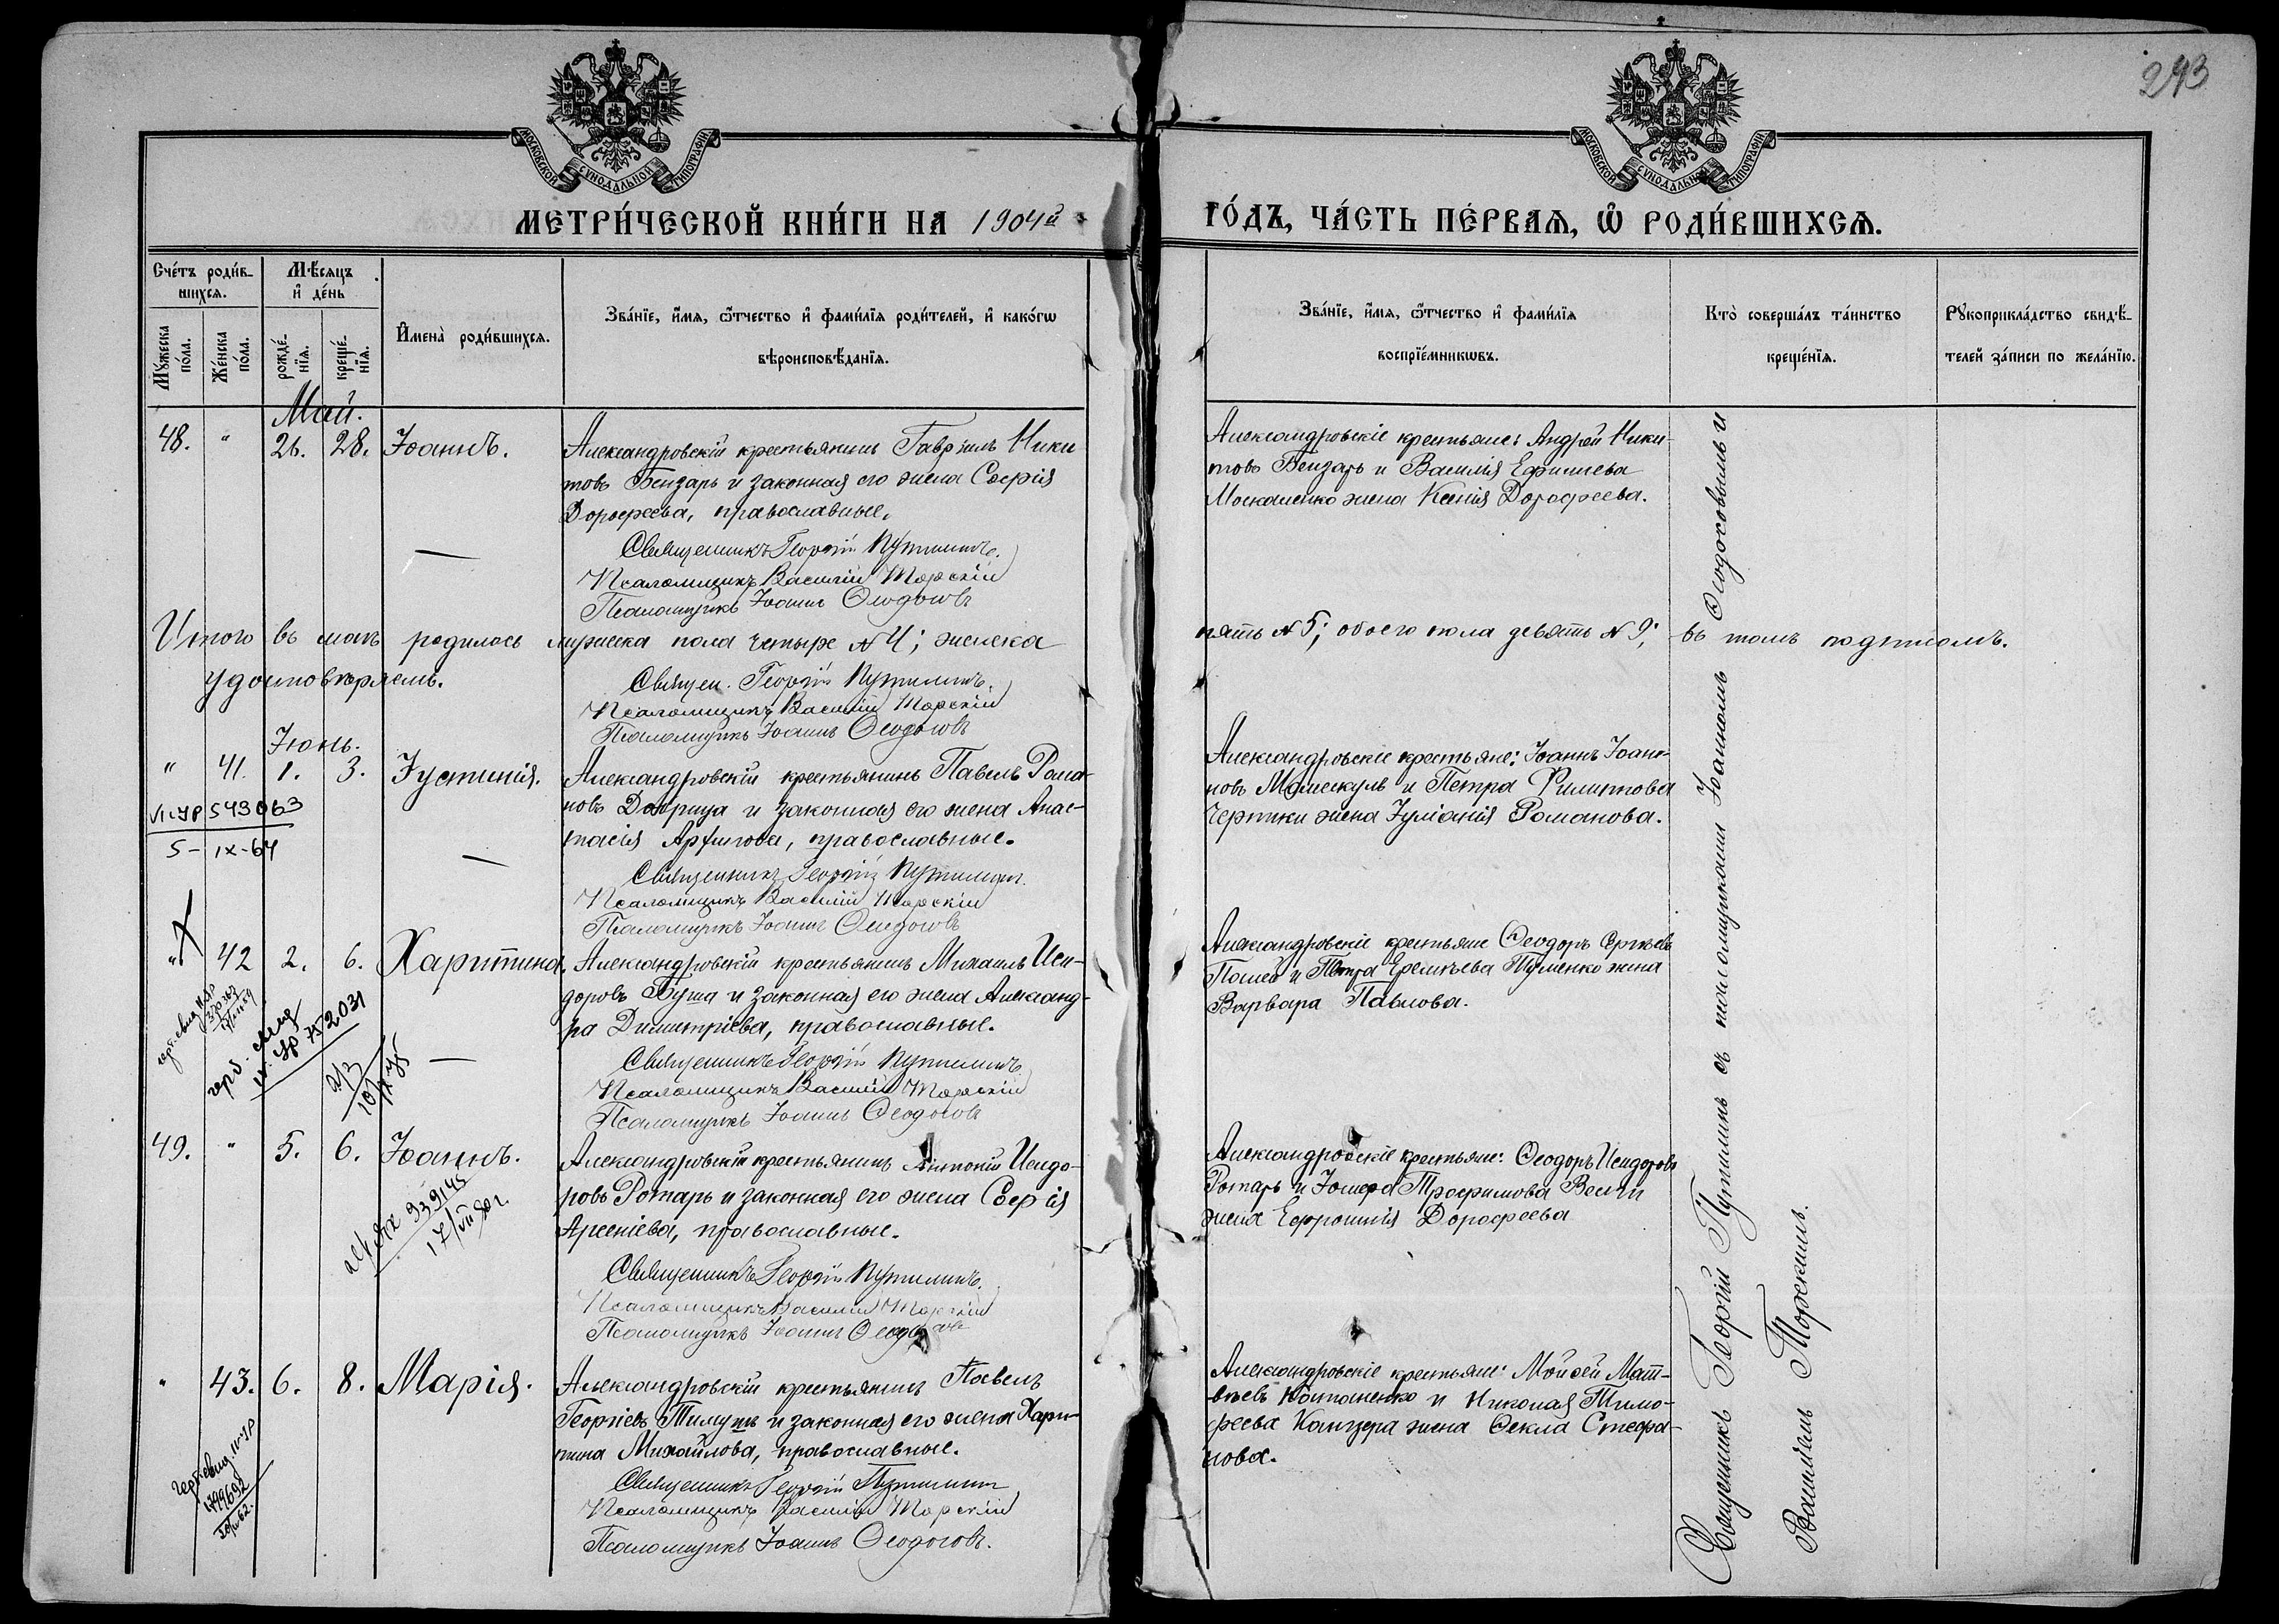 243
МОСКОВСКОЙ СУНОДАЛЬНОЙ ТИПОГРАФІИ
МОСКОВСКОЙ СУНОДАЛЬНОЙ ТИПОГРАФІИ
МЕТРИ́ЧЕСКОЙ КНИ́ГИ НА 1904й
ГО́ДЪ, ЧА́СТЬ ПЕ́РВАѦ, Ѿ РОДИ́ВШИХСѦ.
Сче́тъ роди́в-
шихсѧ.
Мѣ́сѧцъ
и҆ де́нь
Мꙋ́жеска
по́ла.
Же́нска
по́ла.
рожде́-
нїѧ.
креще́-
нїѧ.
И҆мена̀ роди́вшихсѧ.
Зва́нїе, и҆́мѧ, ѻ҆́тчество и҆ фами́лїѧ роди́телей, и҆ како́гѡ
вѣроисповѣ́данїѧ.
Зва́нїе, и҆́мѧ, ѻ҆́тчество и҆ фами́лїѧ
воспрїе́мникѡвъ.
Кто̀ соверша́лъ та́инство
креще́нїѧ.
Рꙋкоприкла́дство свидѣ́-
телей за́писи по жела́нїю.
Май.
48. " 26. 28. Іоаннъ.
Александровскій крестьянинъ Гавріилъ Ники
товъ Бензарь и законная его жена Софія
Дорофеева, православные.
Священникъ Георгій Путилинъ.
Псаломщикъ Василій Торскій
Псаломщикъ Іоаннъ Ѳеодосовъ
Александровскіе крестьяне: Андрей Ники-
товъ Бензарь и Василія Ефимиева
Москаленко жена Ксенія Дорофеева.
Итого въ маѣ родилось мужеска пола четыре № 4; женска
пять № 5; обоего пола девять № 9; въ томъ подписомъ.
удостовѣряемъ.
Священ. Георгій Путилинъ.
Псаломщикъ Василій Торскій
Псаломщикъ Іоаннъ Ѳеодосовъ
Іюнь.
" 41. 1. 3. Іустинія.
Александровскій крестьянинъ Павелъ Рома-
новъ Доррица и законная его жена Анас-
тасія, православные.
Священникъ Георгій Путилинъ.
Псаломщикъ Василій Торскій
Псаломщикъ Іоаннъ Ѳеодосовъ
Александровскіе крестьяне: Іоаннъ Іоан-
новъ Мамескулъ и Петра Филиппова
жена Іуліанія Романова.
543063
5-IX-64
" 42 2. 6. Харитина.
Александровскій крестьянинъ Михаилъ Иси-
доровъ Буша и законная его жена Александ-
ра Димитріева, православные.
Священникъ Георгій Путилинъ.
Псаломщикъ Василій Торскій
Псаломщикъ Іоаннъ Ѳеодосовъ
Александровскіе крестьяне Ѳеодоръ Сергѣевъ
и Петра Еремѣева Туменко жена
Варвара Павлова.
49. " 5. 6. Іоаннъ.
Александровскій крестьянинъ Антоній Исидо-
ровъ Ротарь и законная его жена Софія
Арсеніева, православные.
Священникъ Георгій Путилинъ.
Псаломщикъ Василій Торскій
Псаломщикъ Іоаннъ Ѳеодосовъ
Александровскіе крестьяне: Ѳеодоръ Исидоровъ
Ротарь и Трофимова
жена Ефросинія Дорофеева
939145
" 43. 6. 8. Марія.
Александровскій крестьянинъ Павелъ
Георгіевъ Тимушъ и законная его жена Хари-
тина Михайлова, православные.
Священникъ Георгій Путилинъ
Псаломщикъ Василій Торскій
Псаломщикъ Іоаннъ Ѳеодосовъ.
Александровскіе крестьяне: Мойсей Мат-
вѣевъ Костаненко и Николая Тимо-
феева Канцера жена Ѳекла Стефа-
нова.
Священникъ Георгій Путилинъ съ псаломщиками Іоанномъ Ѳеодосовымъ и
Василіемъ Торскимъ.